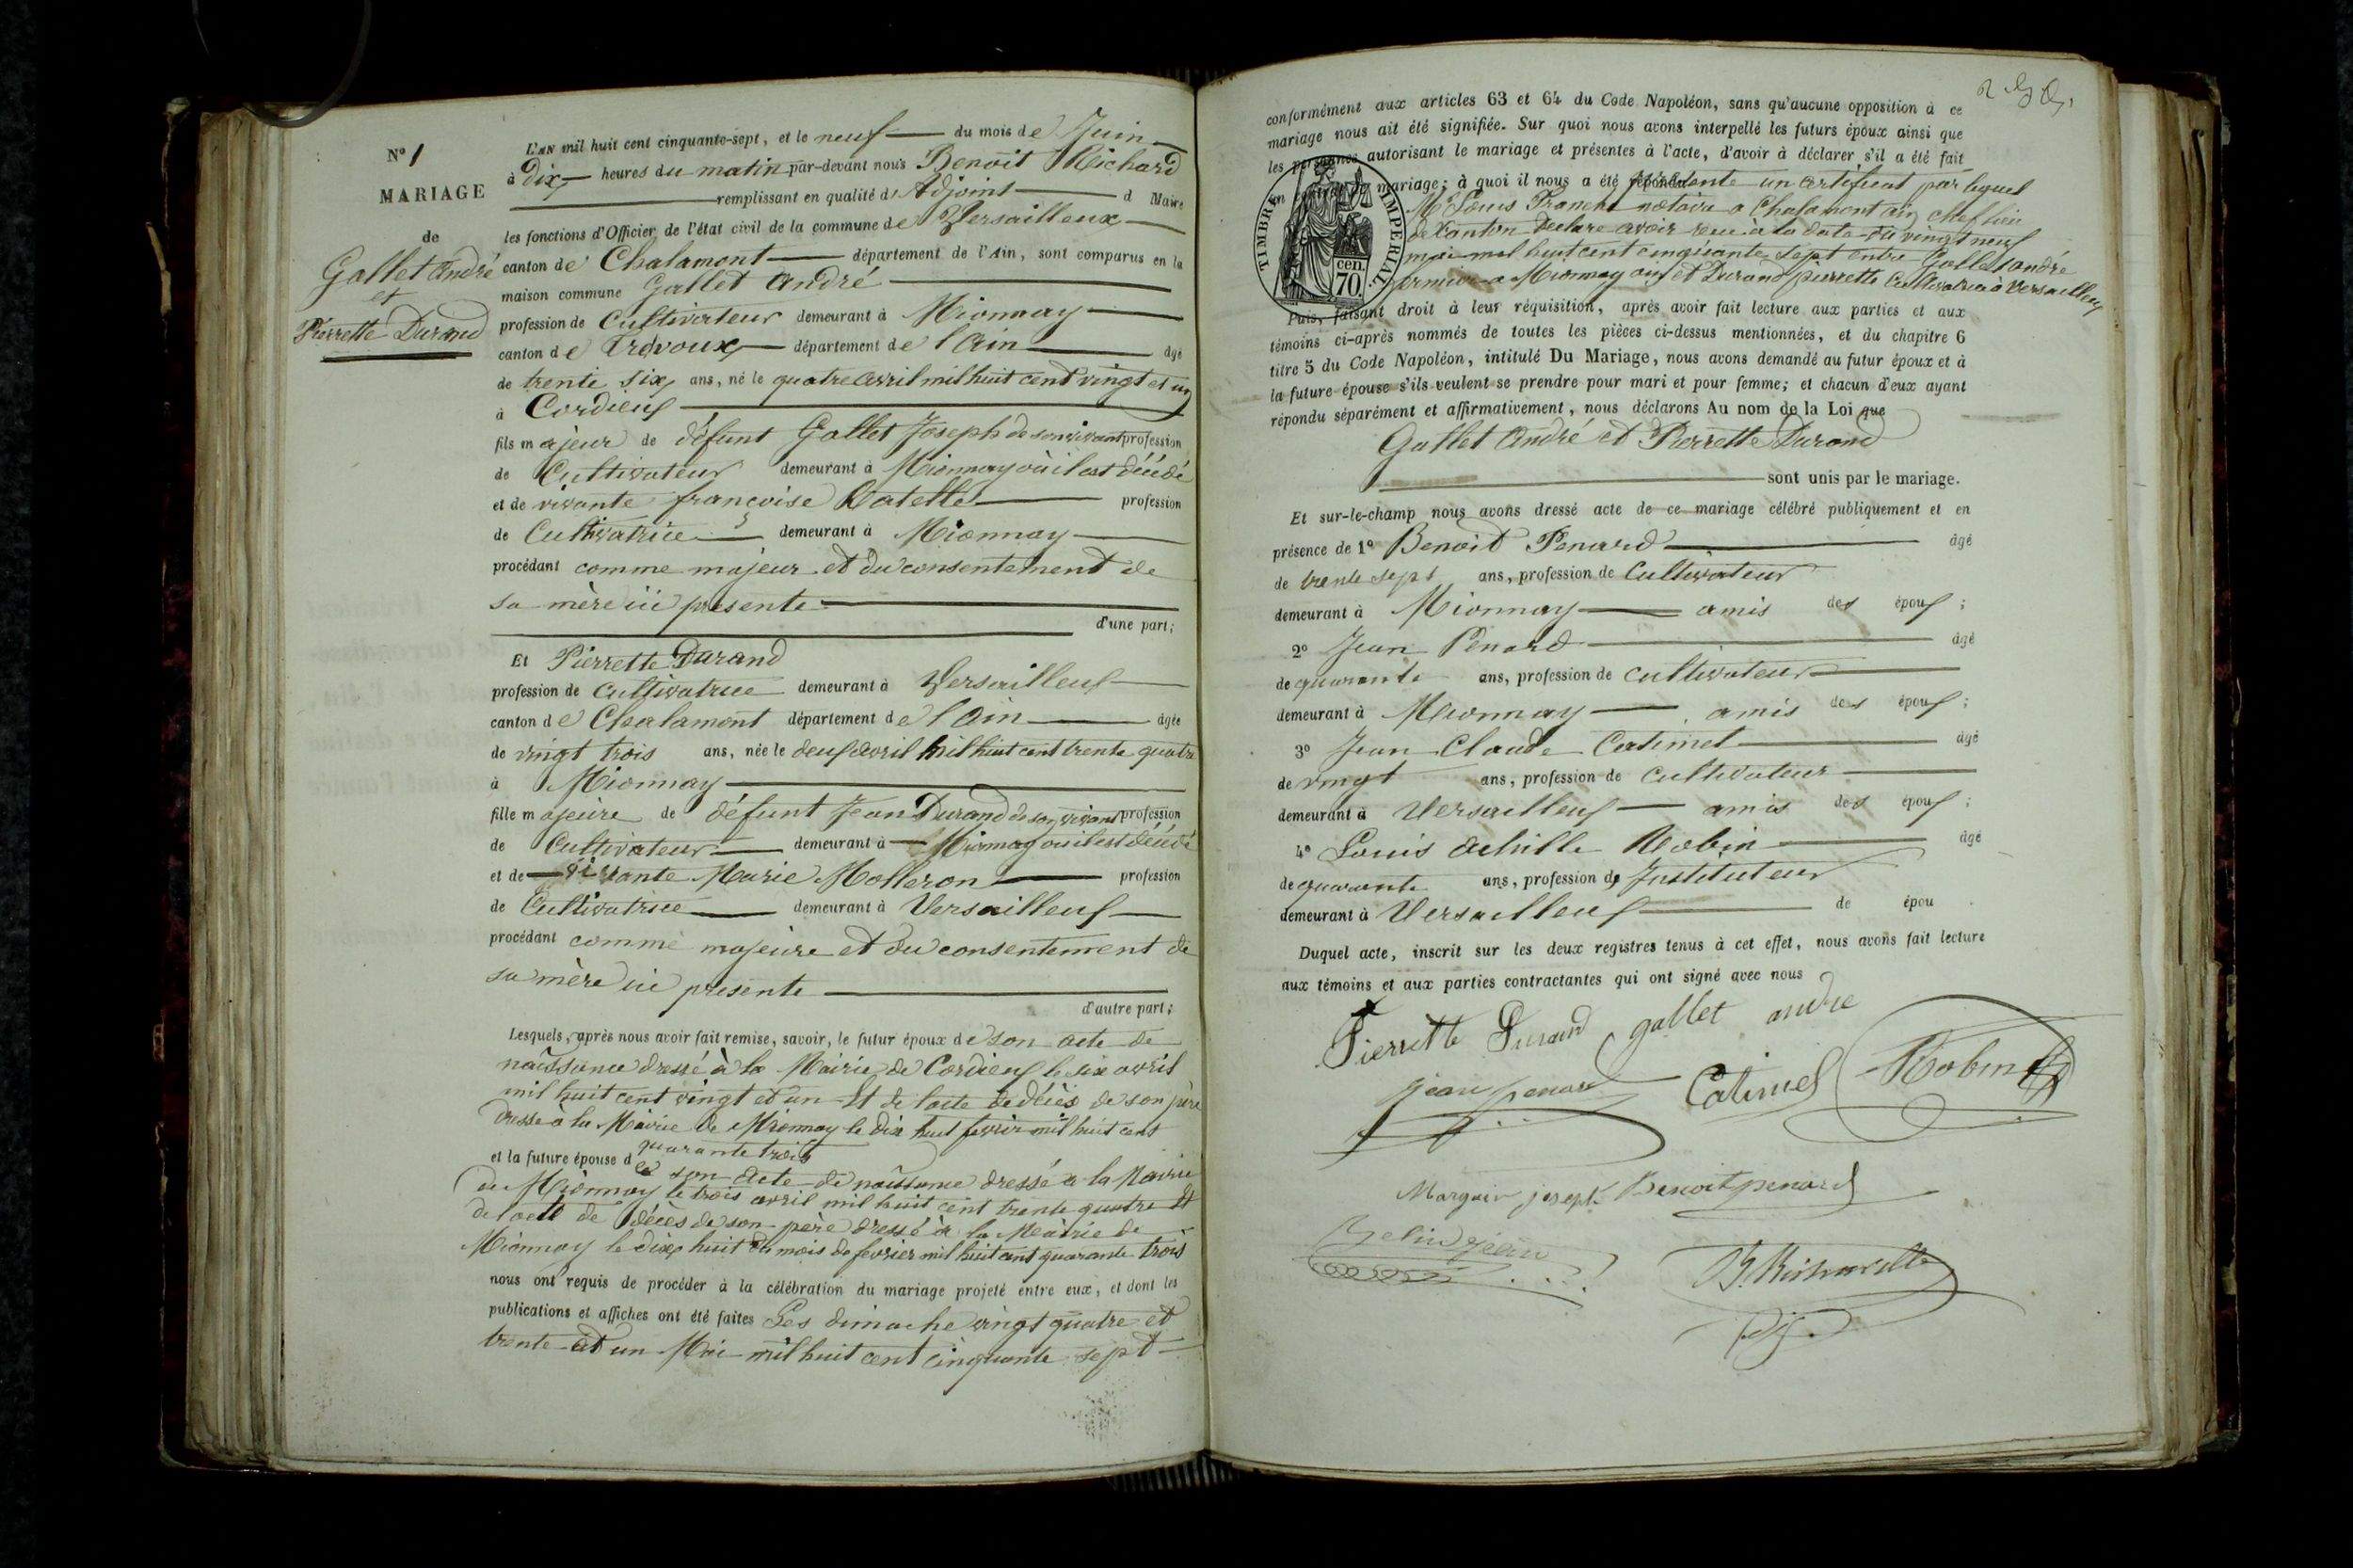 N° 1
MARIAGE
de
Gallet André
et
Pierrette Durand
L'AN mil huit cent cinquante-sept, et le neuf du mois de Juin
à Dix heures du matin par-devant nous Benoit Richard
remplissant en qualité d'Adjoint d Maire
les fonctions d'Officier de l'état civil de la commune de Versailleux
canton de Chalamont département de l'Ain, sont comparus en la
maison commune Gallet André
profession de Cultivateur demeurant à Mionnay
canton de Trévoux département de l'Ain âgé
de trente six ans, né le quatre avril mil huit cent vingt et un
à Cordieux
fils majeur de défunt Gallet Joseph de son vivant profession
de Cultivateur demeurant à Mionnay où il est décédé
et de vivante françoise profession
de Cultivatrice demeurant à Mionnay
procédant comme majeur et du consentement de
sa mère ici présente
d'une part;
Et Pierrette Durand
profession de Cultivatrice demeurant à Versailleux
canton de Chalamont département de l'Ain âgée
de vingt trois ans, née le deux avril mil huit cent trente quatre
à Mionnay
fille majeure de défunt Jean Durand de son vivant profession
de Cultivateur demeurant à Mionnay où il est décédé
et de vivante Marie Molleron profession
de Cultivatrice demeurant à Versailleux
procédant comme majeure et du consentement de
sa mère ici présente
d'autre part;
Lesquels, après nous avoir fait remise, savoir, le futur époux de son acte de
naissance dressé à la Mairie de Cordieux le six avril
mil huit cent vingt et un Et de l'acte de décès de son père
dressé à la Mairie de Mionnay le dix huit fevrier mil huit cent
quarante trois
et la future épouse de son acte de naissance dressé a la Mairie
de Mionnay le trois avril mil huit cent trente quatre Et
de l'acte de décès de son père dressé à la Mairie de
Mionnay le dix huit du mois de fevrier mil huit cent quarante trois
nous ont requis de procéder à la célébration du mariage projeté entre eux, et dont les
publications et affiches ont été faites Les dimanche vingt quatre et
trente et un Mai mil huit cent cinquante sept
conformément aux articles 63 et 64 du Code Napoléon, sans qu'aucune opposition à ce
mariage nous ait été signifiée. Sur quoi nous avons interpellé les futurs époux ainsi que
les personnes autorisant le mariage et présentes à l'acte, d'avoir à déclarer s'il a été fait
mariage; à quoi il nous a été répondu présenté un certificat par lequel
Me Louis notaire a Chalamont ain chef lieu
de Canton declare avoir recu à la date du vingt neuf
mai mil huit cent cinquante sept entre Gallet andré
fermier a Mionnay ain et Durand pierrette Cultivatrice à Versailleux
TIMBRE IMPERIAL
70 cen.
Puis, faisant droit à leur réquisition, après avoir fait lecture aux parties et aux
témoins ci-après nommés de toutes les pièces ci-dessus mentionnées, et du chapitre 6
titre 5 du Code Napoléon, intitulé Du Mariage, nous avons demandé au futur époux et à
la future épouse s'ils veulent se prendre pour mari et pour femme; et chacun d'eux ayant
répondu séparément et affirmativement, nous déclarons Au nom de la Loi que
Gallet André et Pierrette Durand
sont unis par le mariage.
Et sur-le-champ nous avons dressé acte de ce mariage célébré publiquement et en
présence de 1° Benoit Penard âgé
de trente sept ans, profession de Cultivateur
demeurant à Mionnay amis des époux;
2° Jean Penard âgé
de quarante ans, profession de cultivateur
demeurant à Mionnay amis des époux;
3° Jean Claude Catimel âgé
de vingt ans, profession de cultivateur
demeurant à Versailleux amis des époux;
4° Louis Achille Robin âgé
de quarante ans, profession de Instituteur
demeurant à Versailleux de épou
Duquel acte, inscrit sur les deux registres tenus à cet effet, nous avons fait lecture
aux témoins et aux parties contractantes qui ont signé avec nous
Pierrette Durand gallet andre
jean penard Catimel Robin
Marguin joseph Benoit penard